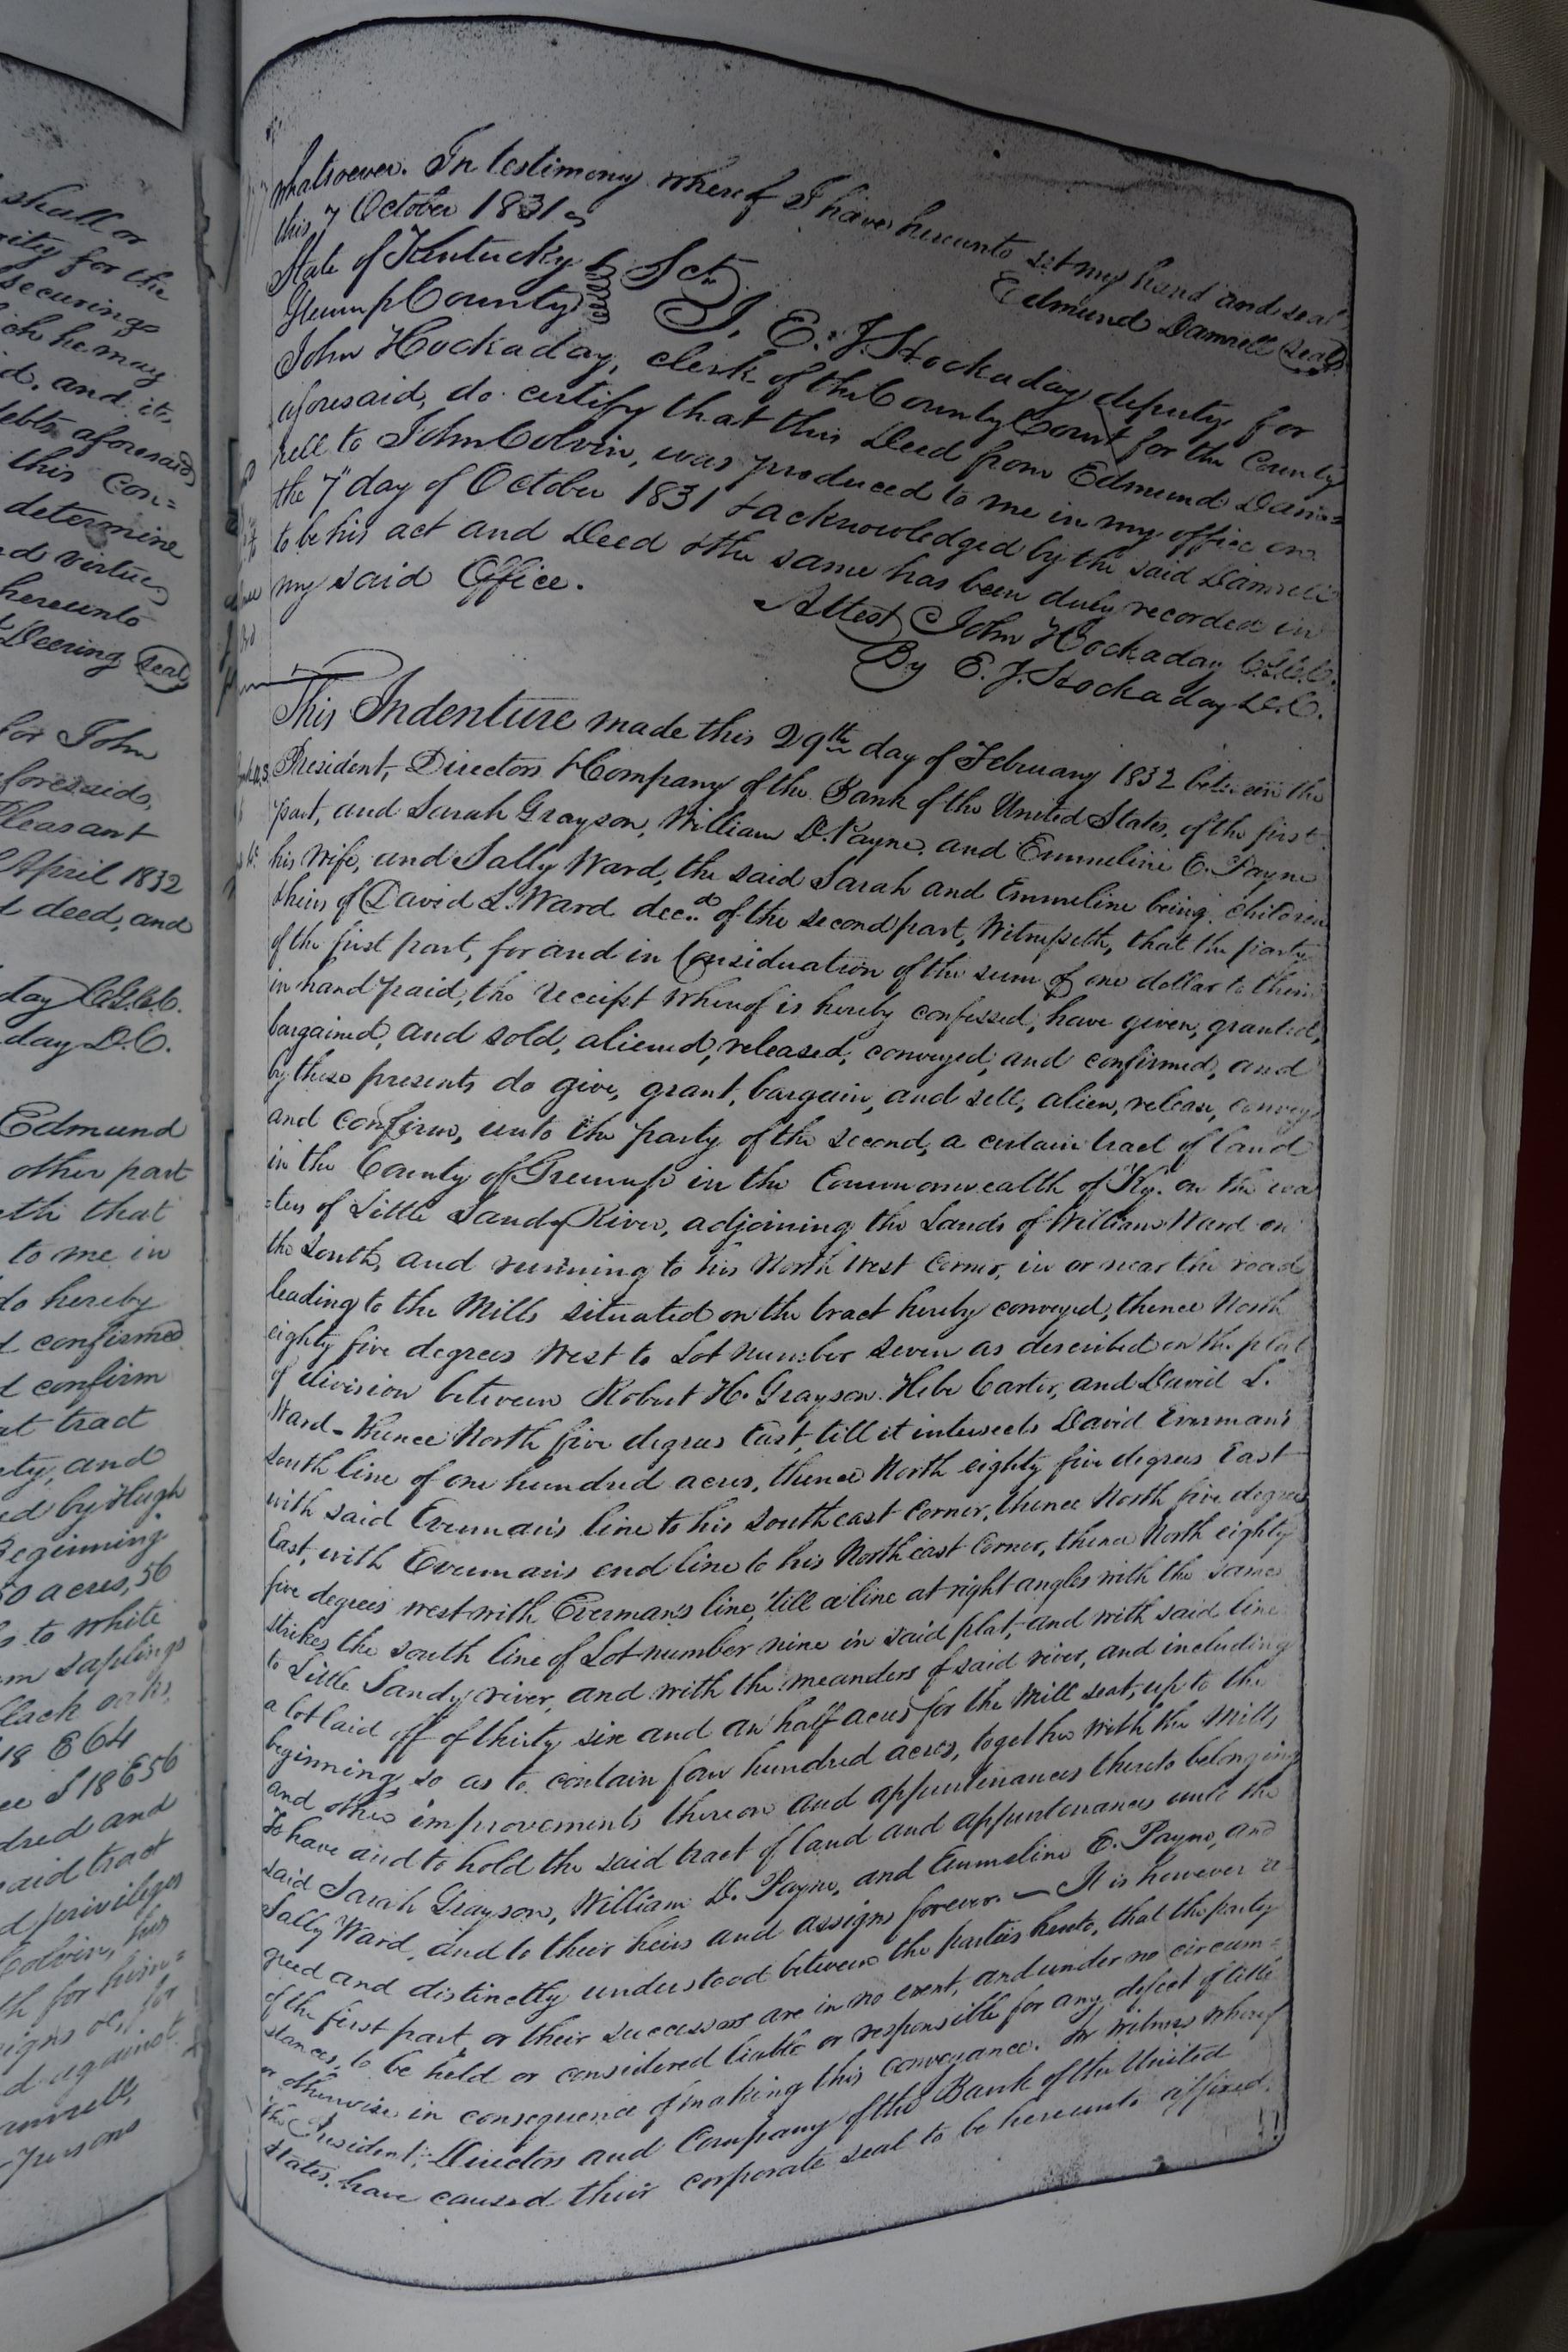 shall or
rity for the
securing
ich he may
d. and its
debts aforesaid
this con=
determine
nd virtue
hereunto
Deering Seal
for John
aforesaid,
Pleasant
April 1832
t deed, and
day C.G.C.C.
day D.C.
Edmund
other part
eth that
to me in
do hereby
t confirmed
d confirm
at tract
ety, and
ed by Hugh
Beginning
50 acres, 56
s to white
m saplings
lack oaks,
18 E 64
ee S 18 E 56
dred and
said tract
d privileges
Colvin, his
th for him=
signs or, for
d against
amrell,
rsons
whatsoever. In testimony whereof I have hereunto set my hand and seal
this 7 October 1831
Edmund Damrell Seal
State of Kentucky Sct
Greenup County
I, E. J. Hockaday deputy for
John Hockaday, clerk of the County Court for the County
aforesaid, do certify that this Deed from Edmund Dam=
rell to John Colvin, was produced to me in my office on
the 7th day of October 1831 & acknowledged by the said Damrell
to be his act and Deed & the same has been duly recorded in
my said Office.
Attest John Hockaday C.G.C.C.
By E. J. Hockaday D.C.
This Indenture made this 29th day of February 1832 between the
President, Directors & Company of the Bank of the United States, of the first
part, and Sarah Grayson, William D. Payne, and Emmeline E. Payne
his wife, and Sally Ward, the said Sarah and Emmeline being children
& heirs of David L. Ward decd. of the second part, Witnesseth, that the party
of the first part, for and in Consideration of the sum of one dollar to them
in hand paid, the receipt whereof is hereby confessed, have given, granted,
bargained, and sold, aliened, released, conveyed, and confirmed, and
by these presents do give, grant, bargain, and sell, alien, release, convey
and confirm, unto the party of the second, a certain tract of land
in the County of Greenup in the Commonwealth of Ky. on the wa
=ters of Little Sandy River, adjoining the Lands of William Ward on
the South, and running to his North West Corner, in or near the road
leading to the Mills situated on the tract hereby conveyed, thence North
eighty five degrees West to Lot number seven as described on the plat
of division between Robert H. Grayson. Hebe Carter, and David L.
Ward - thence North five degrees East, till it intersects David Everman's
south line of one hundred acres, thence North eighty five degrees East
with said Everman's line to his south east corner, thence North five degrees
East, with Everman's end line to his North east Corner, thence North eighty
five degrees west with Everman's line, 'till a line at right angles with the same
strikes the south line of Lot number nine in said plat, and with said line
to Little Sandy river, and with the meanders of said river, and including
a lot laid off of thirty six and an half acres for the Mill seat, up to the
beginning, so as to contain four hundred acres, together with the Mills
and other improvements thereon and appurtenances thereto belonging
To have and to hold the said tract of land and appurtenances unto the
said Sarah Grayson, William D. Payne, and Emmeline E. Payne, and
Sally Ward, and to their heirs and assigns forever. — It is however a
greed and distinctly understood between the parties hereto, that the party
of the first part or their successors are in no event, and under no circum=
stances, to be held or considered liable or responsible for any defect of title
or otherwise in consequence of making this conveyance. In witness whereof
the President, Directors and Company of the Bank of the United
States, have caused their corporate seal to be hereunto affixed.